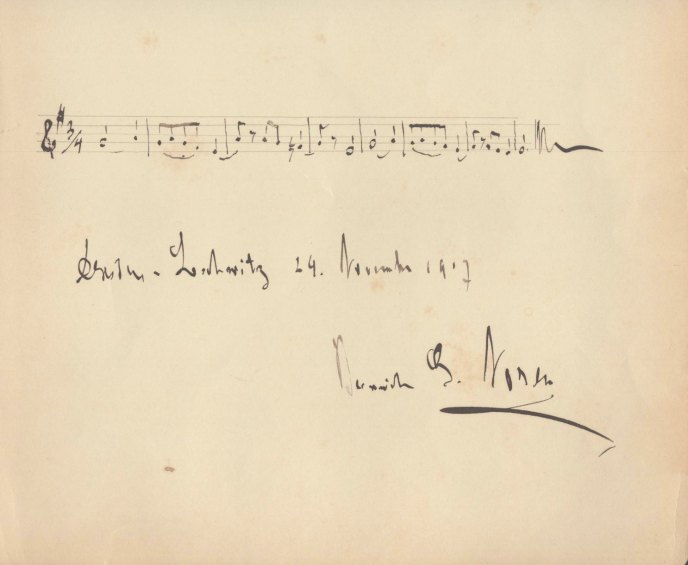 3/4
Dresden-Loschwitz 24. November 1917
Heinrich G. Noren